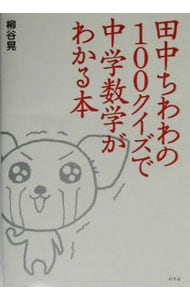 田中ちわわの
100クイズで
中学数学が
わかる本
柳谷晃